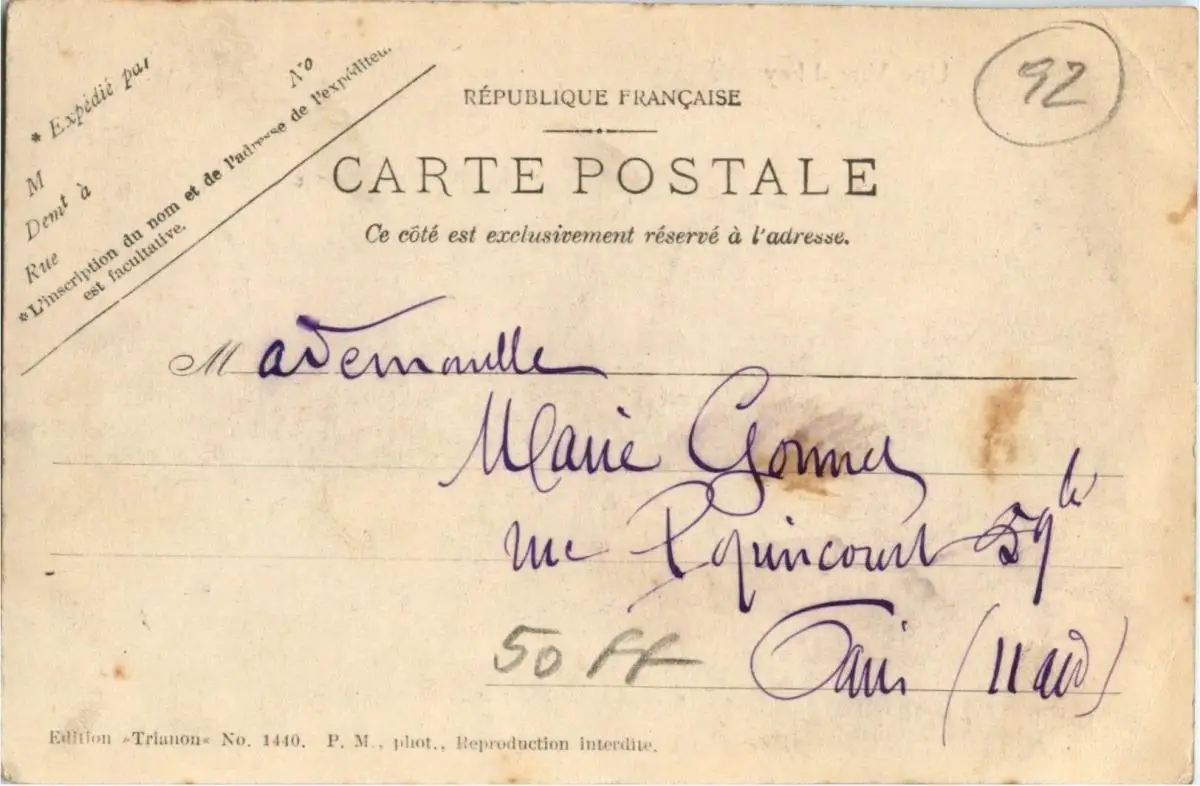 * Expédié par
M
Demt à
Rue
No
*L'inscription du nom et de l'adresse de l'expéditeur
est facultative.
92
RÉPUBLIQUE FRANÇAISE
CARTE POSTALE
Ce côté est exclusivement réservé à l'adresse.
Mademoiselle
Marie
rue Popincourt 59
Paris
50 FF
Edition »Trianon« No. 1440. P. M., phot., Reproduction interdite.